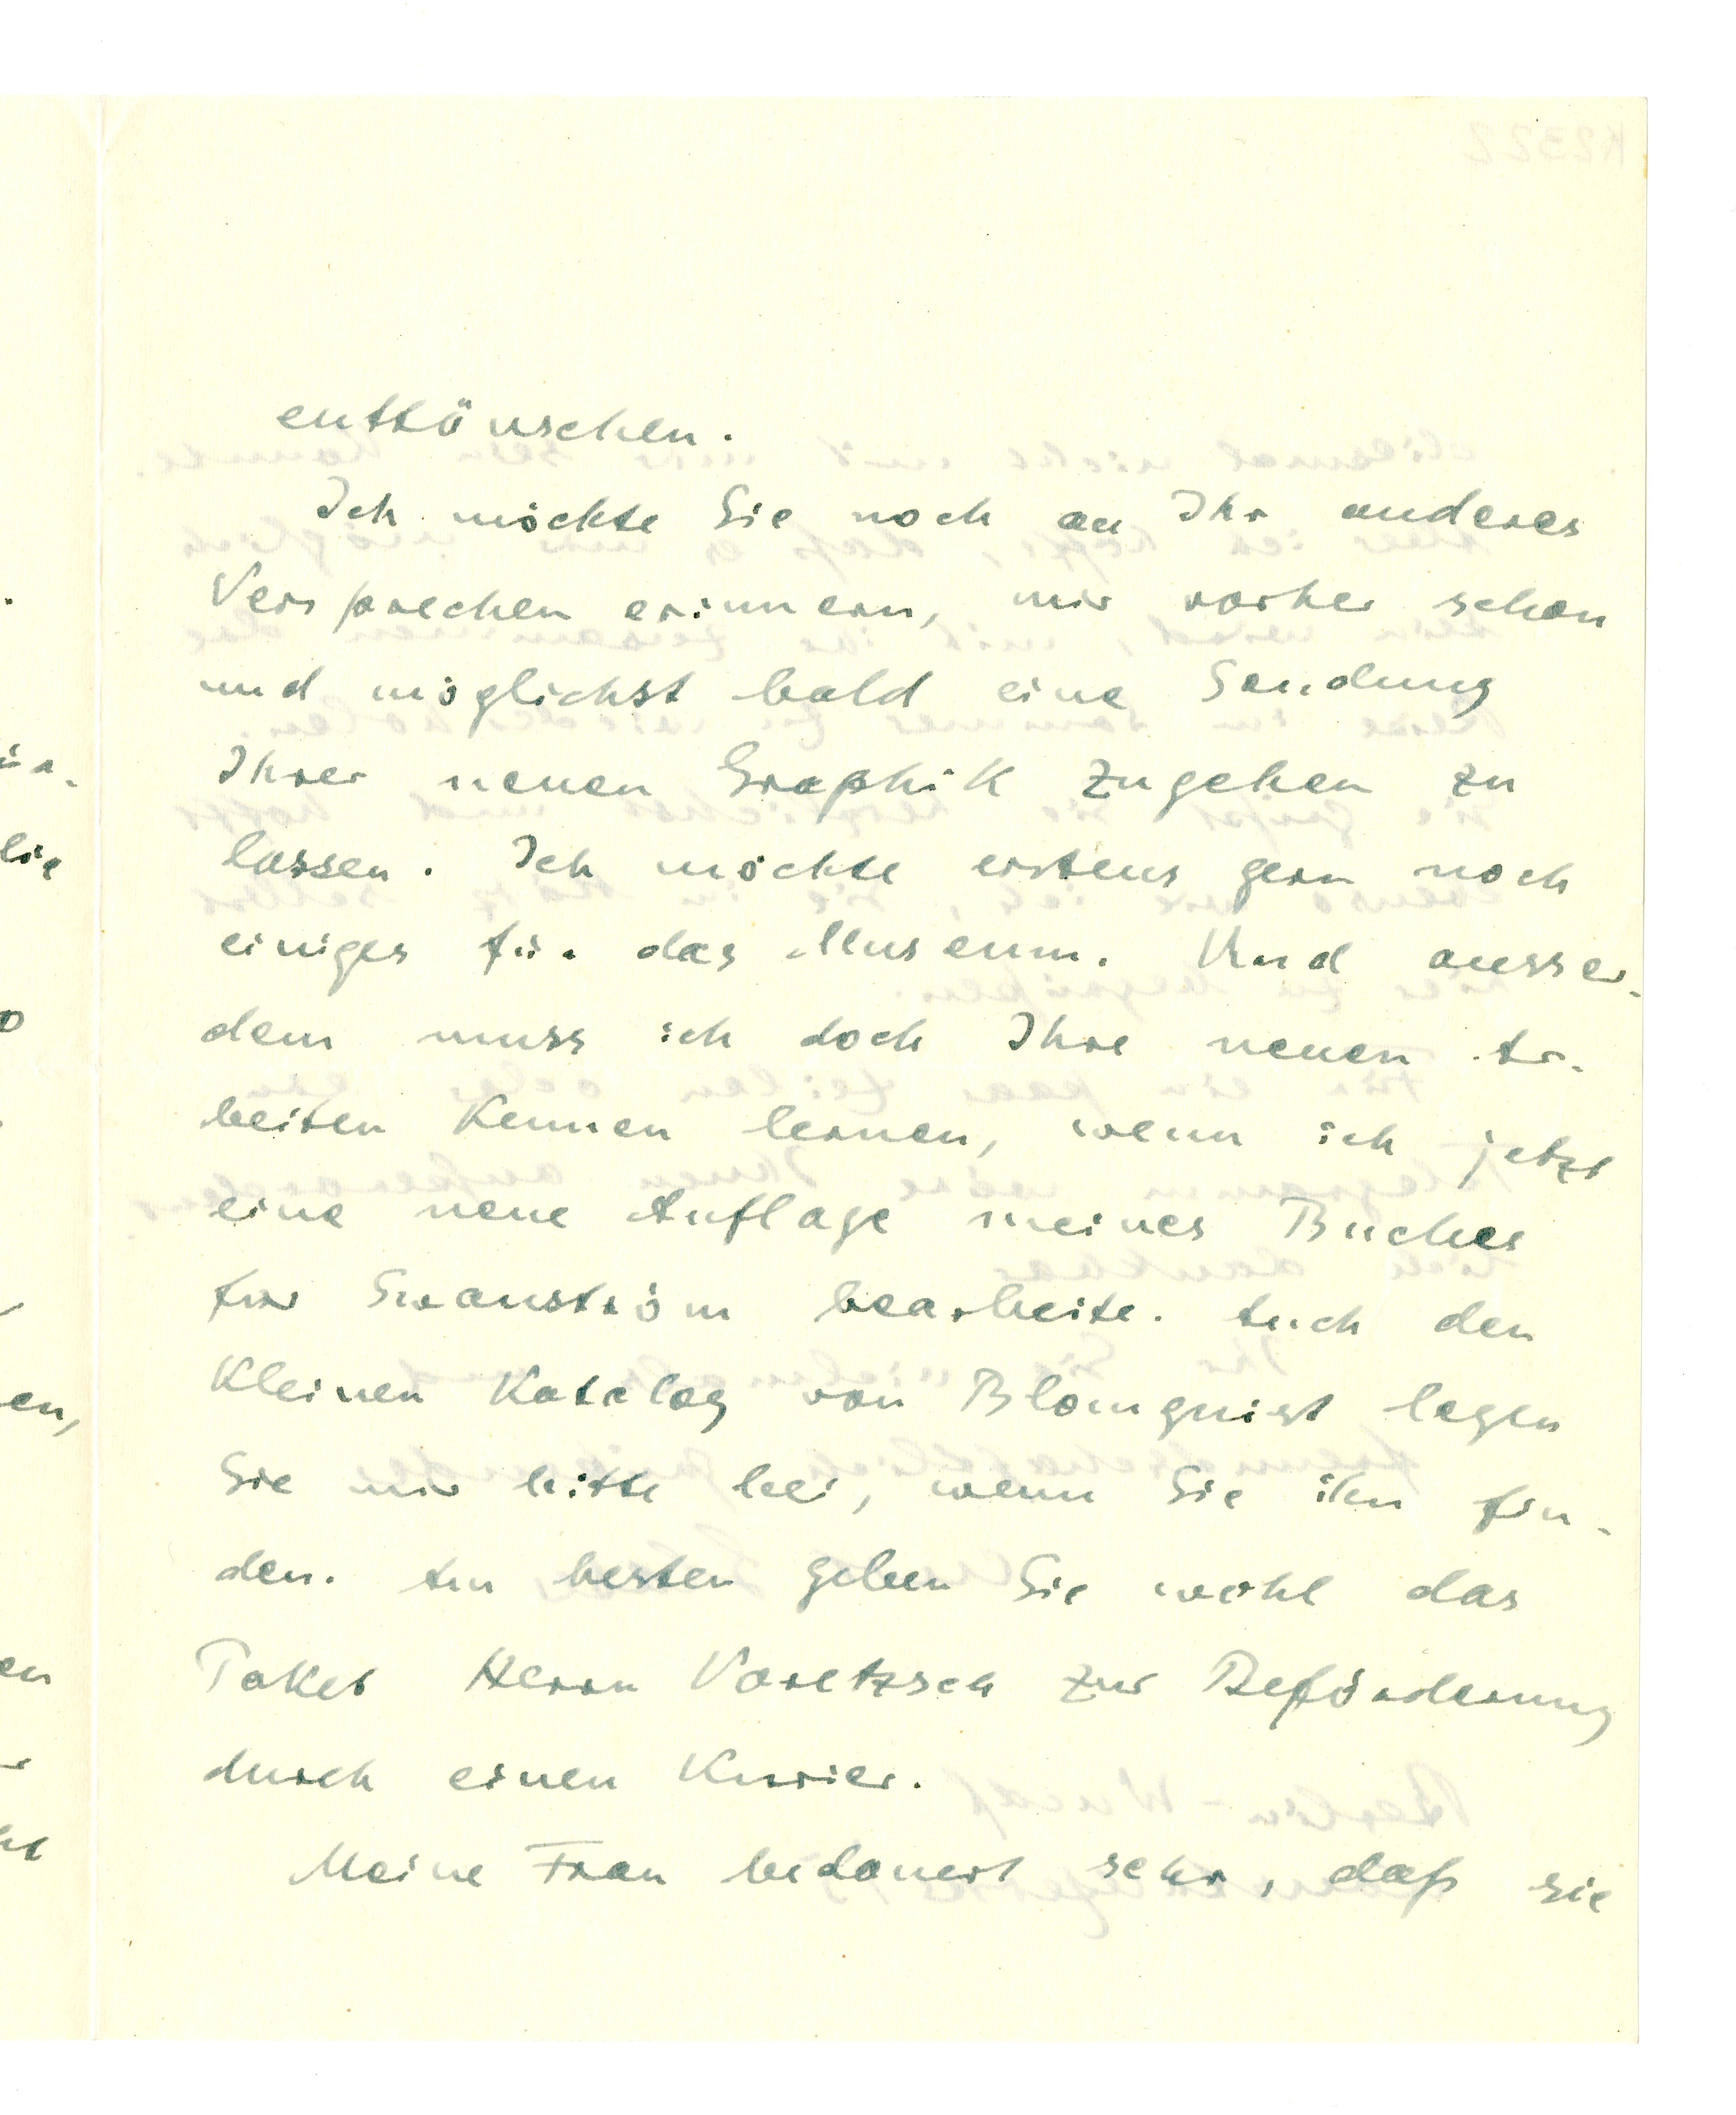 enttäuschen.
Ich möchte Sie noch an Ihr anderes
Versprechen erinnern, mir vorher schon
und möglichst bald eine Sendung
Ihrer neuen Graphik zugehen zu
lassen. Ich möchte erstens gern noch
einiges für das Museum. Und ausser-
dem muss ich doch Ihre neuen Ar-
beiten kennen lernen, wenn ich jetzt
eine neue Auflage meines Buches
für Swanström bearbeite. Auch den
kleinen Katalog von Blomquist legen
Sie mir bitte bei, wenn Sie ihn fin-
den. Am besten geben Sie wohl das
Paket Herrn Voretzsch zur Beförderung
durch einen Kurier.
Meine Frau bedauert sehr, daß sie